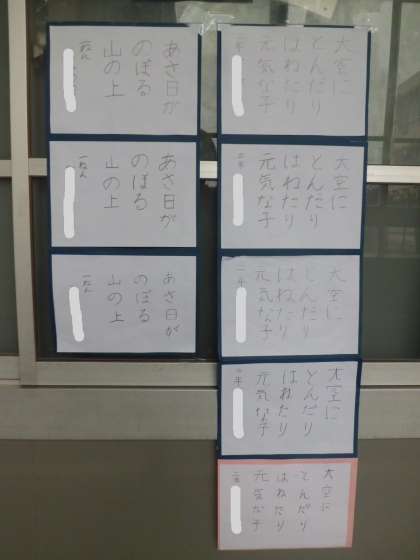 大空に
とんだり
はねたり
元気な子
二年
大空に
とんだり
はねたり
元気な子
二年
大空に
とんだり
はねたり
元気な子
二年
大空に
とんだり
はねたり
元気な子
二年
大空に
とんだり
はねたり
元気な子
二年
あさ日が
のぼる
山の上
一ねん
あさ日が
のぼる
山の上
一ねん
あさ日が
のぼる
山の上
一ねん